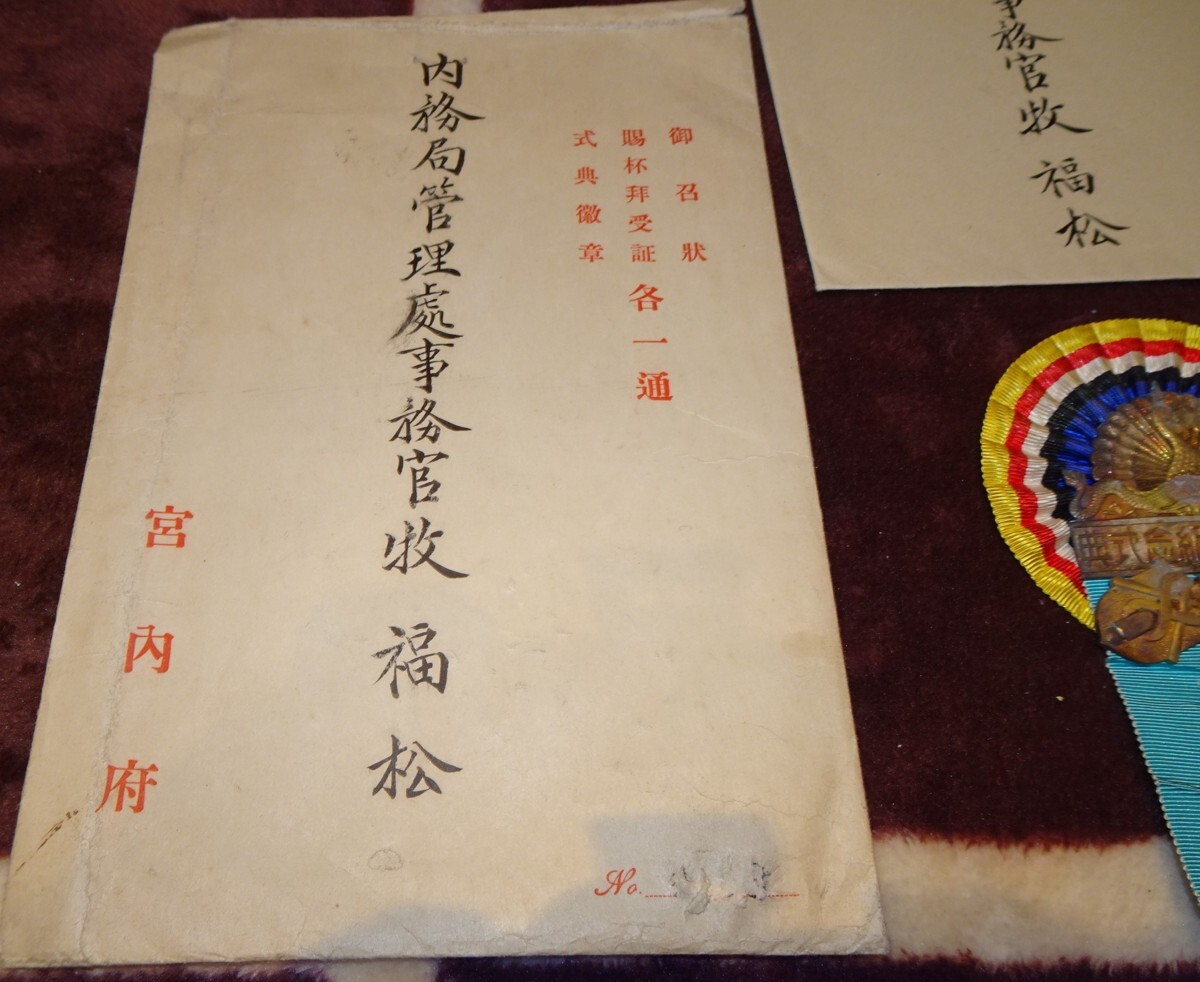 御召狀
賜杯拜受証
式典徽章
各一通
内務局管理處事務官牧福松
宮內府
No.
事務官牧福松